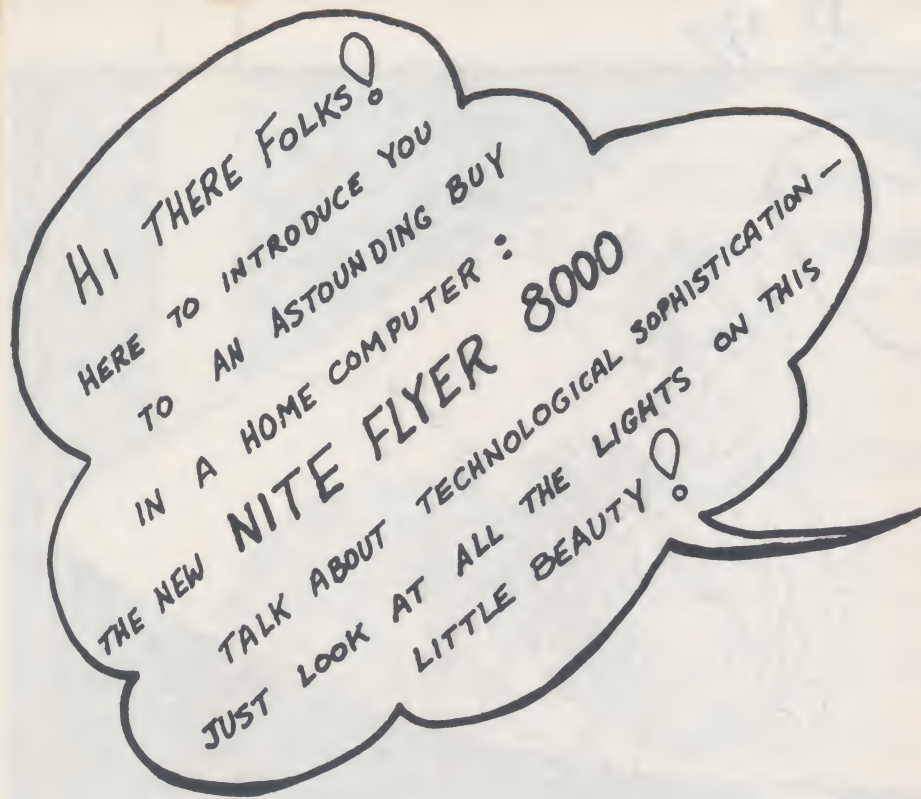 HI THERE FOLKS!
HERE TO INTRODUCE YOU
TO AN ASTOUNDING BUY
IN A HOME COMPUTER:
THE NEW NITE FLYER 8000
TALK ABOUT TECHNOLOGICAL SOPHISTICATION—
JUST LOOK AT ALL THE LIGHTS ON THIS
LITTLE BEAUTY!